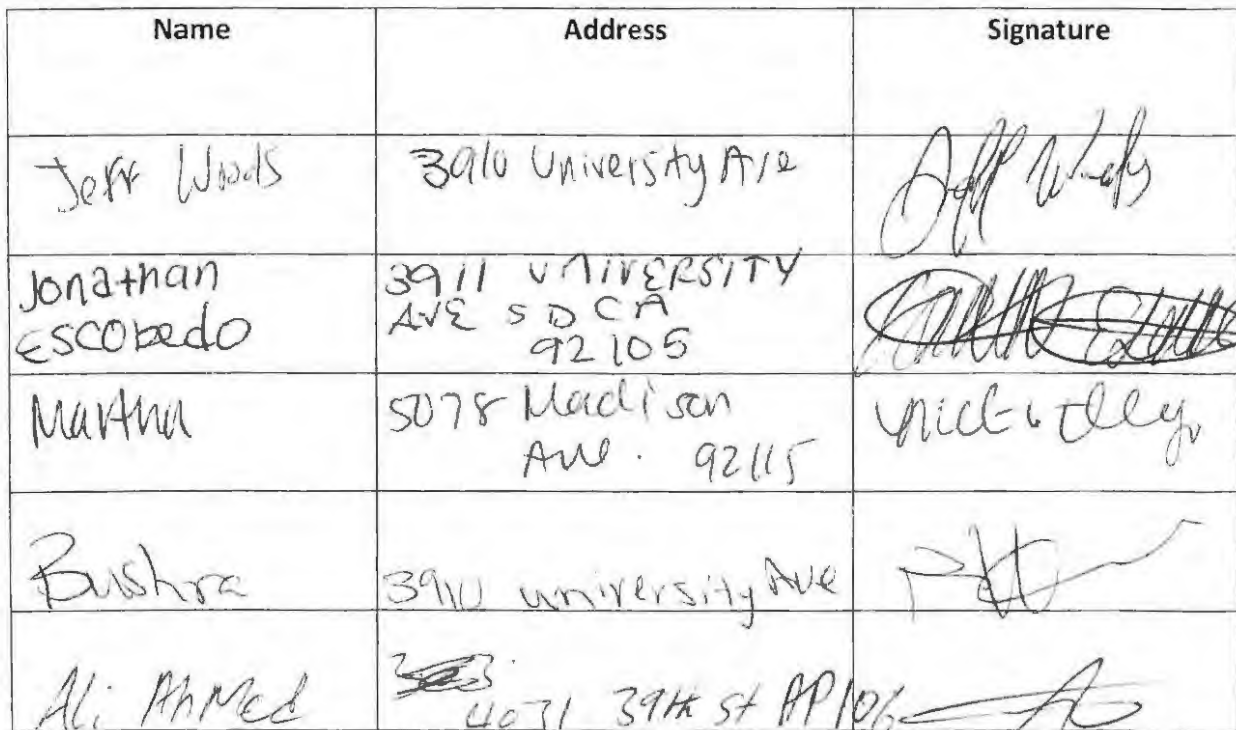 Name Address Signature
Jeff Woods 3910 University Ave Jeff Woods
Jonathan 3911 UNIVERSITY
Escobedo AVE SD CA
92105
Martha 5078 Madison
Ave. 92115
Bushra 3910 university Ave
Ali AhMed 4031 39th st AP106